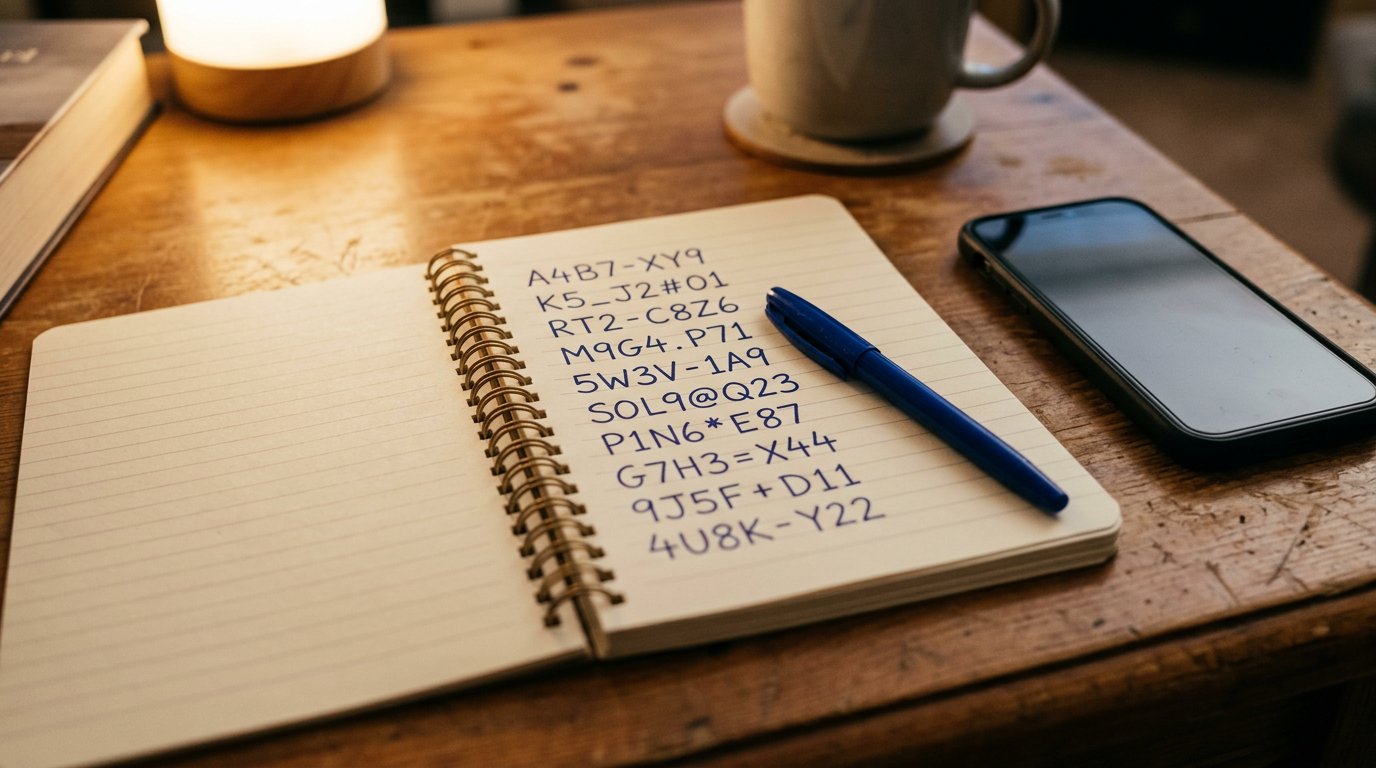 A4B7-XY9
K5_J2#01
RT2-C8Z6
M9G4.P71
5W3V-1A9
SOL9@Q23
P1N6*E87
G7H3=X44
9J5F+D11
4U8K-Y22